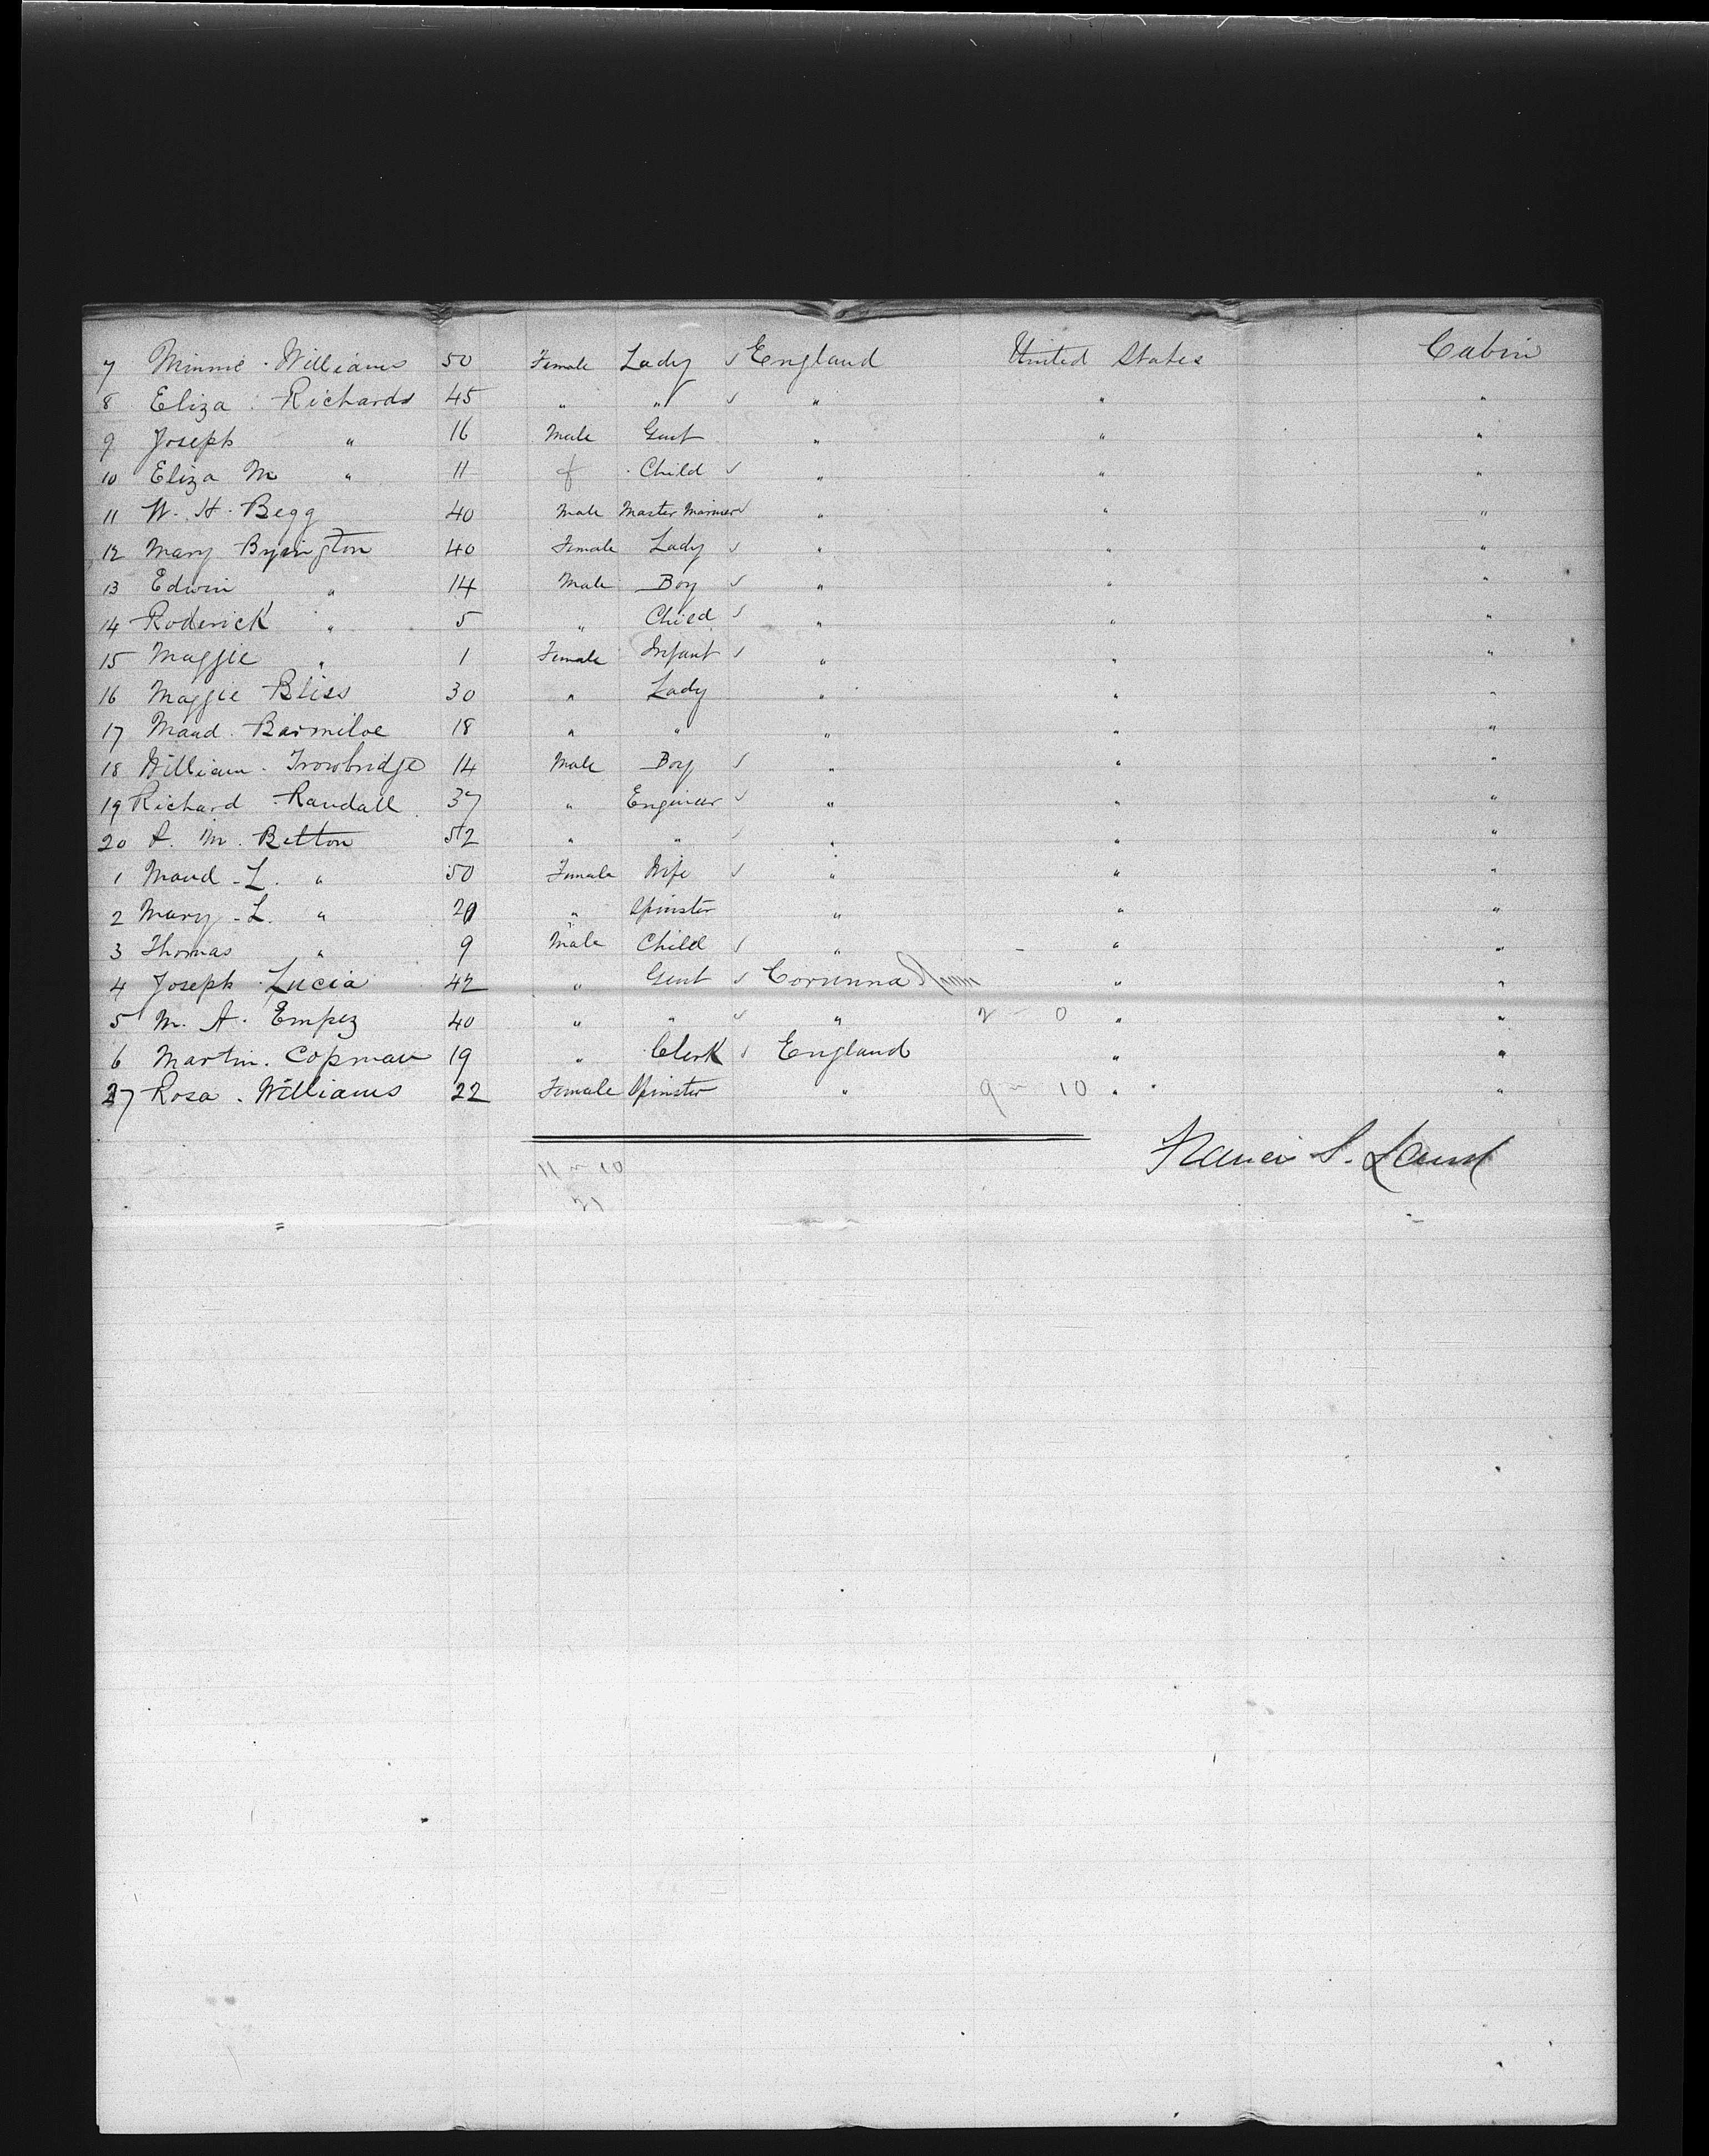 7 Minnie Williams 50 Female Lady ✓ England United States Cabin
8 Eliza Richards 45 " " ✓ " " "
9 Joseph " 16 Male Gent " " "
10 Eliza M " 11 f Child ✓ " " "
11 W. H. Begg 40 Male Master Mariner ✓ " " "
12 Mary Byington 40 Female Lady ✓ " " "
13 Edwin " 14 Male Boy ✓ " " "
14 Roderick " 5 " Child ✓ " " "
15 Maggie " 1 Female Infant ✓ " " "
16 Maggie Bliss 30 " Lady " " "
17 Maud 18 " " " " "
18 William Trowbridge 14 Male Boy ✓ " " "
19 Richard Randall 37 " Engineer ✓ " " "
20 M. Betton 52 " " ✓ " " "
1 Maud L. " 50 Female Wife ✓ " " "
2 Mary L. " 20 " Spinster " " "
3 Thomas " 9 Male Child ✓ " " "
4 Joseph Lucia 42 " Gent ✓ Corunna " "
5 M. A. Empez 40 " " ✓ " 2 - 0 " "
6 Martin Copman 19 " Clerk ✓ England " "
27 Rosa Williams 22 Female Spinster " 9 - 10 " "
11 - 10
21
Francis S. Land